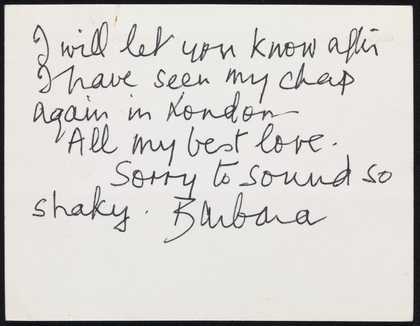 I will let you know after
I have seen my chap
again in London
All my best love.
Sorry to sound so
shaky. Barbara